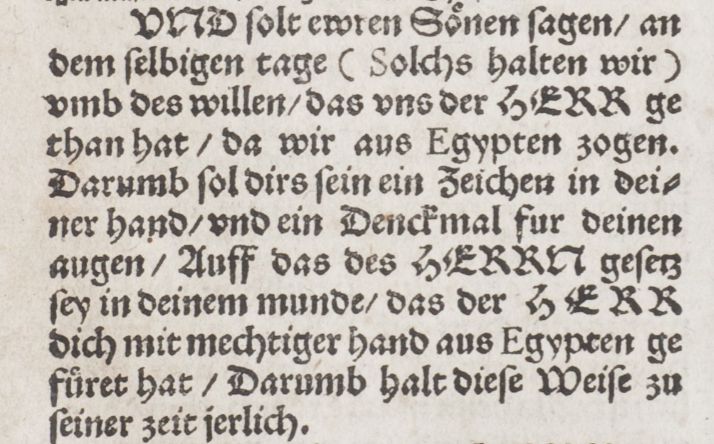 VND solt ewren Sönen sagen/ an
dem selbigen tage ( Solchs halten wir )
vmb des willen/ das vns der HERR ge
than hat / da wir aus Egypten zogen.
Darumb sol dirs sein ein Zeichen in dei⸗
ner hand/ vnd ein Denckmal fur deinen
augen / Auff das des HERRN gesetz
sey in deinem munde/ das der HERR
dich mit mechtiger hand aus Egypten ge
füret hat / Darumb halt diese Weise zu
seiner zeit jerlich.